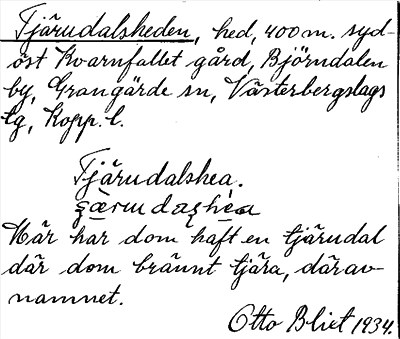 Tjärudalsheden, hed, 400 m. syd-
ost Kvarnfallet gård, Björndalen
by, Grangärde sn, Västerbergslags
tg, Kopp. l.
Tjärudalshea.
Här har dom haft en tjärudal
där dom bränt tjära, därav-
namnet.
Otto Blixt 1934.